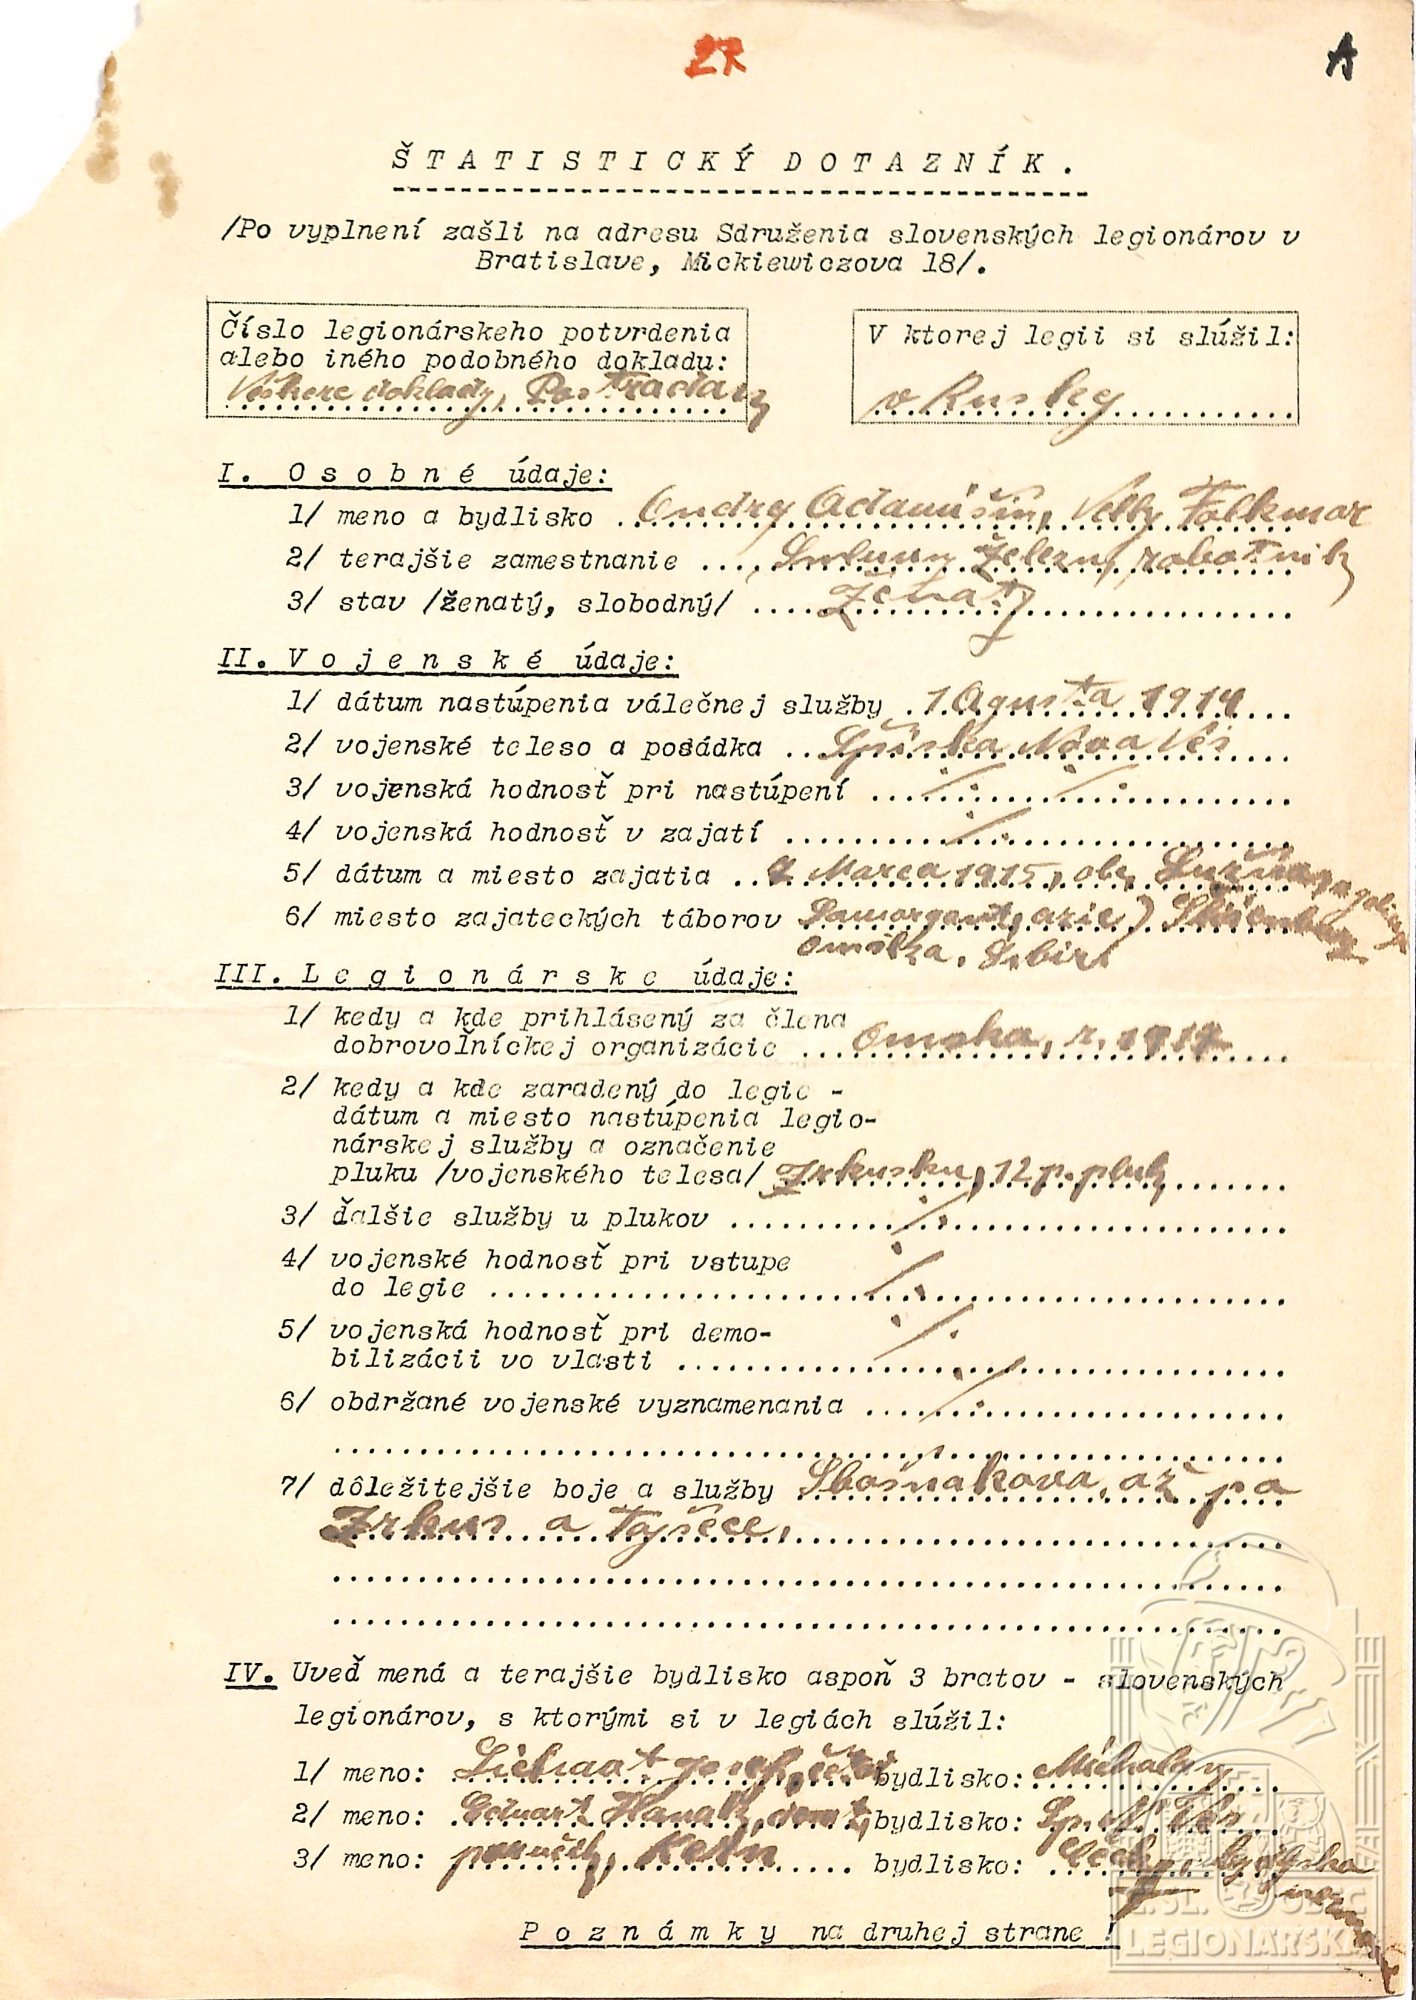 27
A
ŠTATISTICKÝ DOTAZNÍK.
/Po vyplnení zašli na adresu Sdruženia slovenských legionárov v
Bratislave, Mickiewiczova 18/.
Číslo legionárskeho potvrdenia
alebo iného podobného dokladu:
doklady,
V ktorej legii si slúžil:
v Ruskey
I. Osobné údaje:
1/ meno a bydlisko Ondrey Adamišin, Velky Folkmar
2/ terajšie zamestnanie robotnik
3/ stav /ženatý, slobodný/ Ženaty
II. Vojenské údaje:
1/ dátum nastúpenia válečnej služby 1. Agusta 1914
2/ vojenské teleso a posádka Spiska Nova Ves
3/ vojenská hodnosť pri nastúpení
4/ vojenská hodnosť v zajatí
5/ dátum a miesto zajatia Marca 1915,
6/ miesto zajateckých táborov
Omska, Sibir
III. Legionárske údaje:
1/ kedy a kde prihlásený za člena
dobrovoľníckej organizácie Omska, r.
2/ kedy a kde zaradený do legie -
dátum a miesto nastúpenia legio-
nárskej služby a označenie
pluku /vojenského telesa/ Irkusku, 12 p. pluk
3/ ďalšie služby u plukov
4/ vojenské hodnosť pri vstupe
do legie
5/ vojenská hodnosť pri demo-
bilizácii vo vlasti
6/ obdržané vojenské vyznamenania
7/ dôležitejšie boje a služby až po
Irkus a Tajšece,
IV. Uveď mená a terajšie bydlisko aspoň 3 bratov - slovenských
legionárov, s ktorými si v legiách slúžil:
1/ meno: bydlisko: Michalany
2/ meno: Eduart Hanak, bydlisko: Sp. N. Ves
3/ meno: bydlisko:
Poznámky na druhej strane !
Č.SL. OBEC
LEGIONÁŘSKÁ